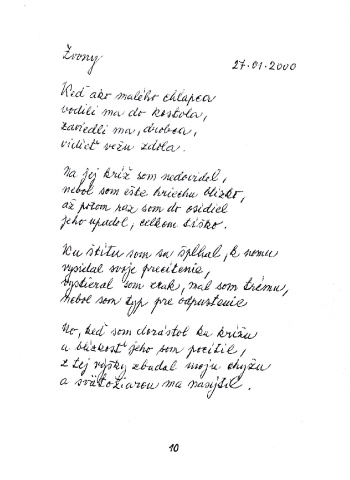 Zvony
27.01.2000
Keď ako malého chlapca
vodili ma do kostola,
zaviedli ma, drobca,
vidieť vežu zdola.
Na jej kríž som nedovidel,
nebol som ešte hriechu blízko,
až potom raz som do osídiel
jeho upadol, celkom tíško.
Ku štítu som sa šplhal, k nemu
vysielal svoje precítenie,
vystieral som zrak, mal som trému,
nebol som typ pre odpustenie
No, keď som dorástol ku krížu
a blízkosť jeho som pocítil,
z tej výšky zbadal svoju chyžu
a svätožiarou ma nasýtil.
10